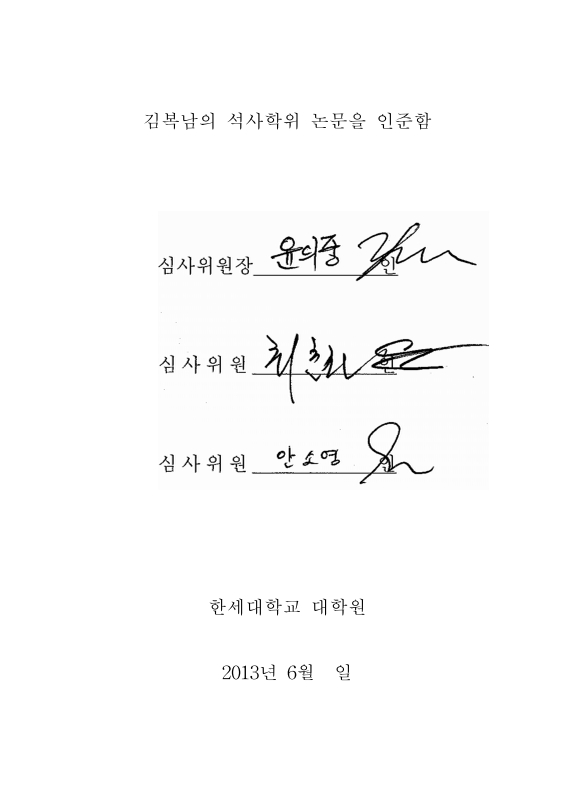 김복남의 석사학위 논문을 인준함
심사위원장 윤의중 인
심사위원 인
심사위원 안소영 인
한세대학교 대학원
2013년 6월 일